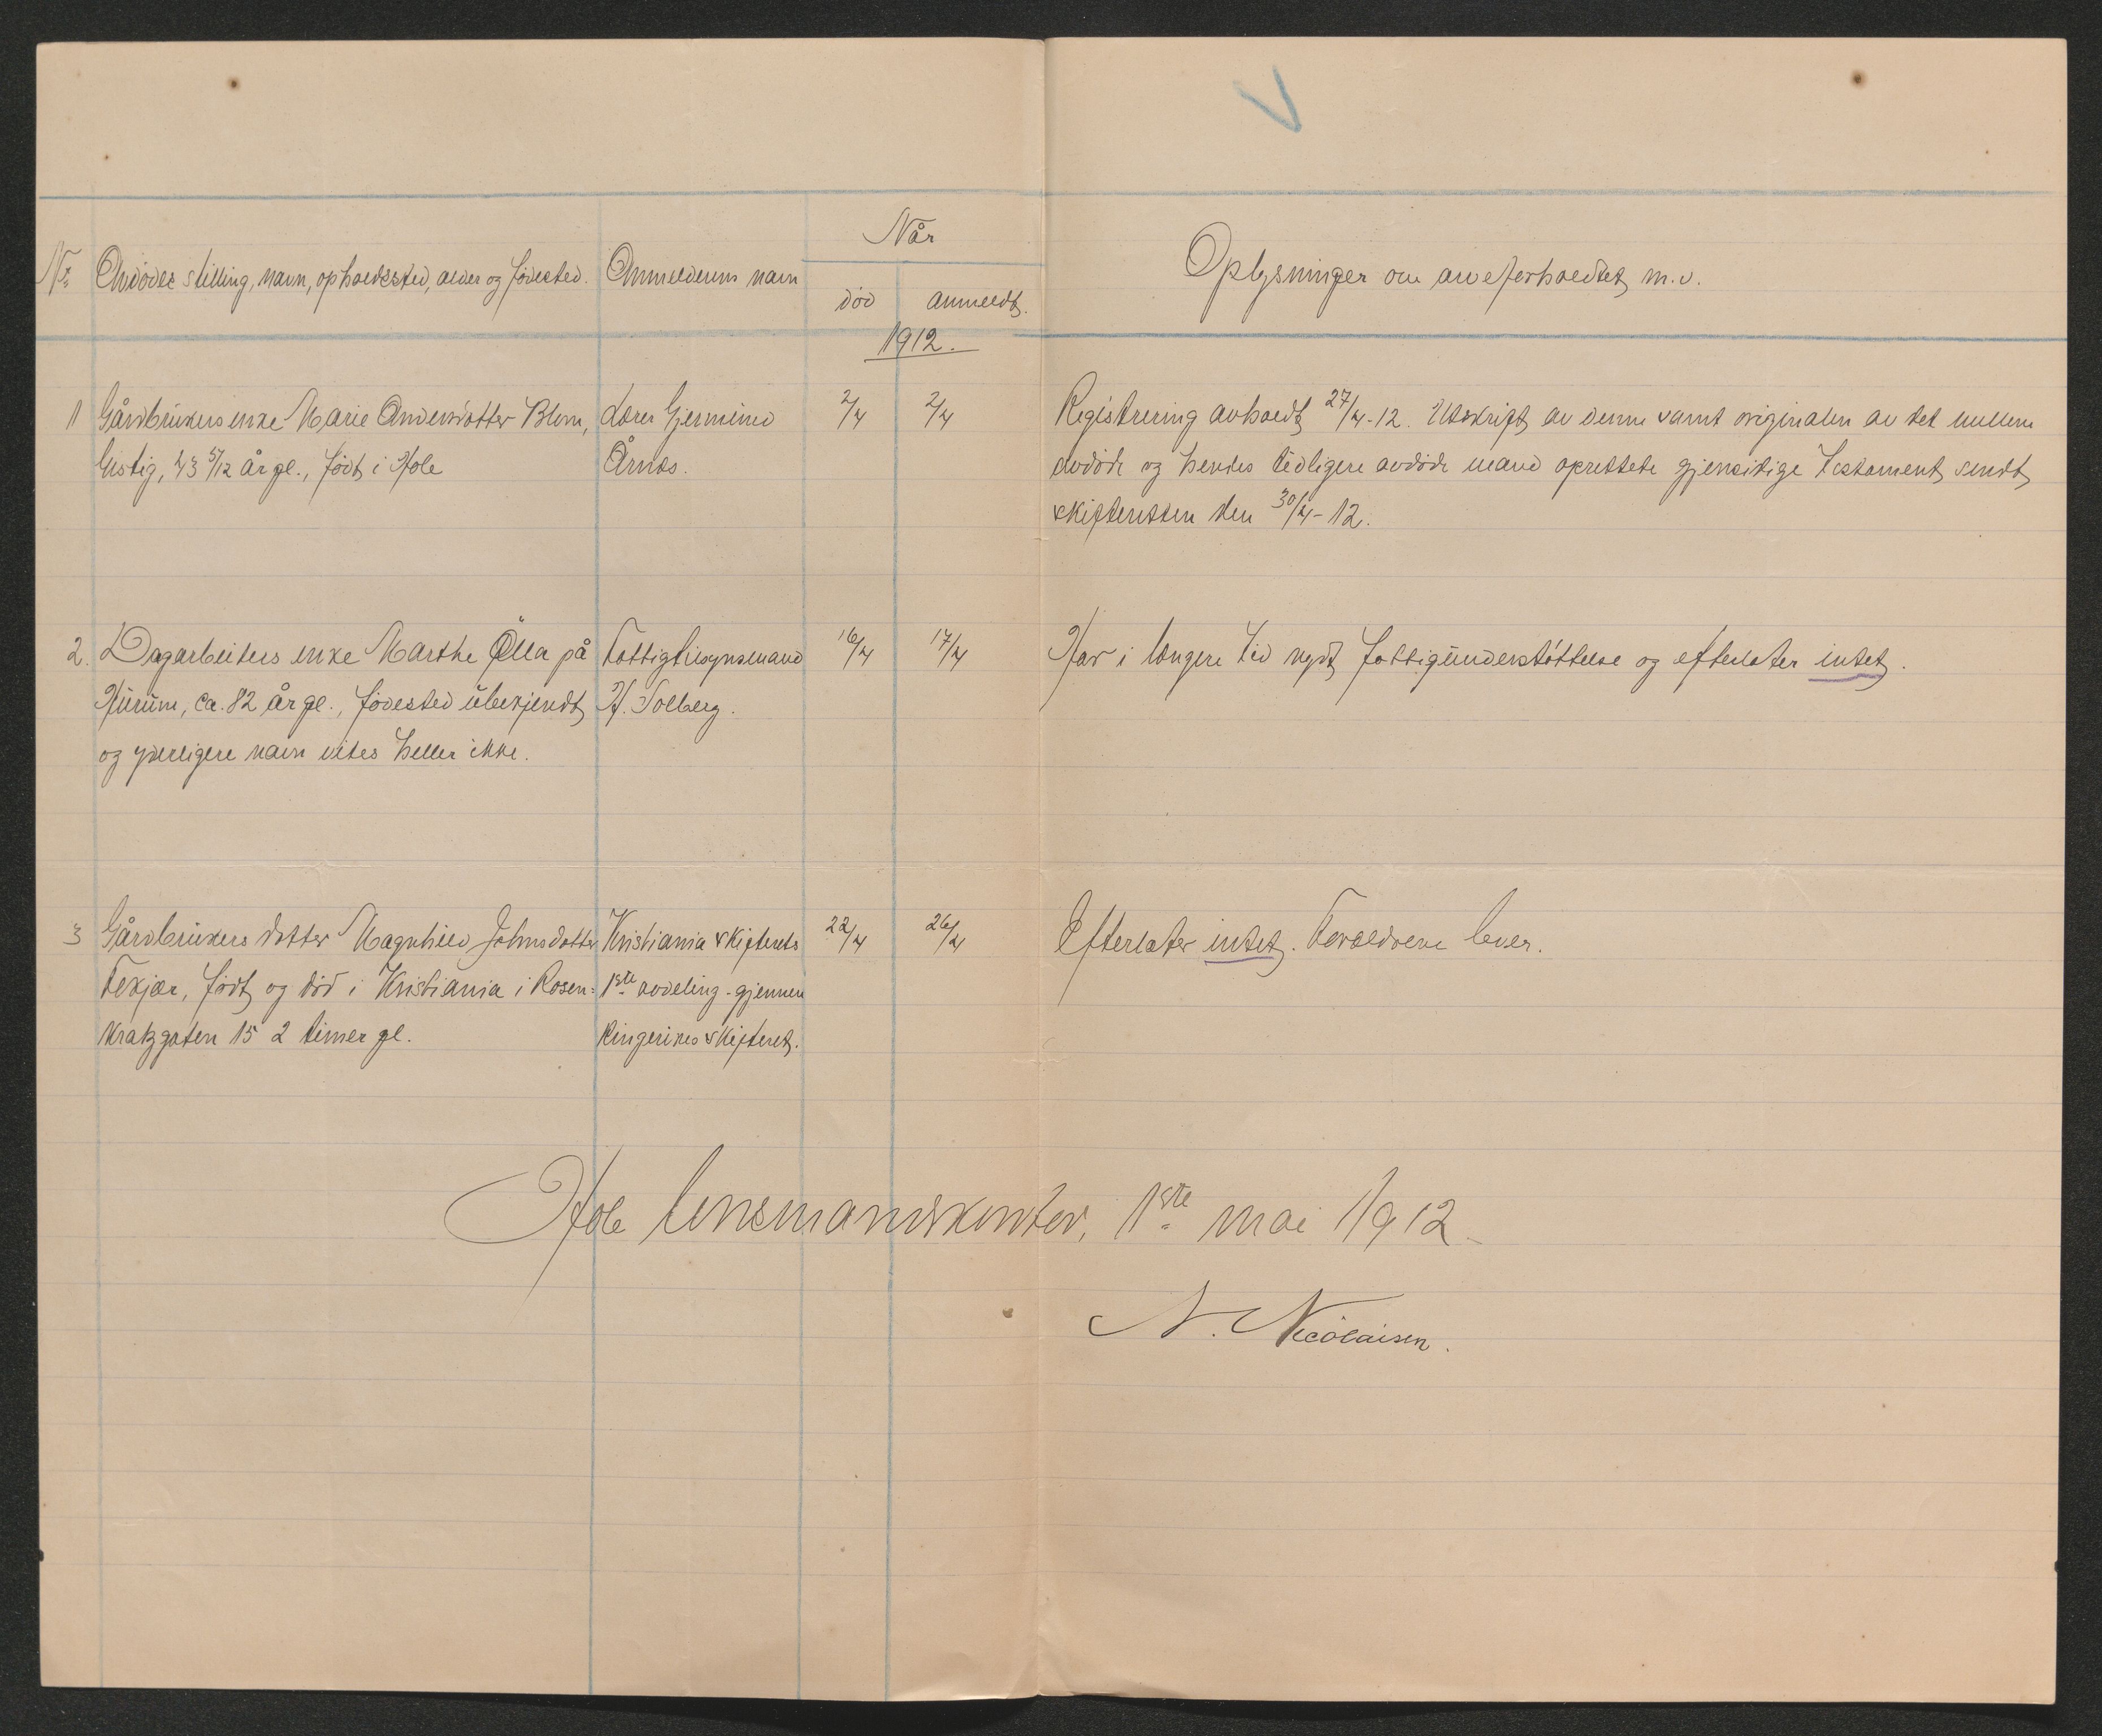 Når
Nr. Avdødes stilling, navn, opholdssted, alder og fødested. Anmelderens navn død anmeldt. Oplysninger om arveforholdet m.v.
1912.
1 Gårdbrukers enke Marie Andersdotter Blom, Lærer Gjermund 2/4 2/4 Registrering avholdt 27/4-12. Utskrift av denne samt originalen av det mellem
Ustig, 43 5/12 år gl., født i Hole Årnes. avdøde og hendes tidligere avdøde mand oprettede gjensitige testament sendt
skifteretten den 30/4-12.
2. Dagarbeiders enke Marthe Ølla på Fattigtilsynsmand 16/4 17/4 Har i længere tid nydt fattigunderstøttelse og efterlater intet.
Hurum, ca. 82 år gl., fødested ubekjendt H. Solberg.
og yderligere navn vites heller ikke.
3 Gårdbrukers datter Magnhild Johnsdatter Kristiania skifterets 22/4 26/4 Efterlater intet. Forældrene lever.
Fekjær, født og død i Kristiania i Rosen= 1ste avdeling - gjennem
krantzgaten 15 2 timer gl. Ringerikes skifteret.
Hole lensmandskontor, 1ste mai 1912
N. Nicolaisen.